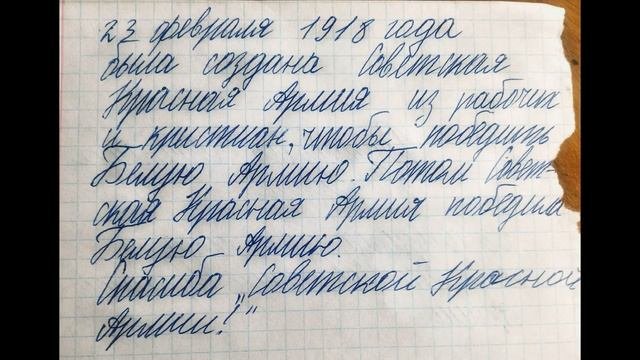 23 февраля 1918 года
была создана Советская
Красная Армия из рабочих
и кристиан, чтобы победить
Белую Армию. Потом Совет-
ская Красная Армия победила
Белую Армию.
Спасиба „Советской Красной
Армии!"